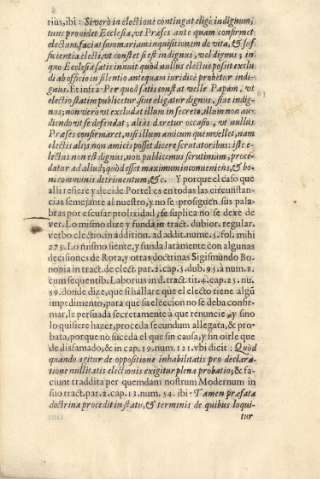 rius, ibi: Si verò in electione contingat eligi indignum,
tunc provideat Ecclesia, ut Præses ante quam confirmet
electum, faciat summariam inquisitionem de vita, & suf-
ficientia electi, ut constet si est indignus, vel dignus; in
quo Ecclesia satis innuit quòd nullus electus possit exclu-
di ab officio in silentio antequam iuridicè probetur indi-
gnus. Et infra: Per quod satis constat velle Papam, ut
electio statim publicetur sive eligatur dignus, sive indig-
nus; non verò ut excludat illum in secreto, illum non au-
diendo vel se defendat, aliàs daretur occasio, ut nullus
Præses confirmaret, nisi illum amicum quem vellet, nam
electis alijs non amicis posset dicere scrutatoribus: iste e-
lectus non est dignus, non publicemus scrutinium, proce-
datur ad aliud; quod esset maximum inconueniens, & bo-
ni communis detrimentum, &c. Y porque el caso que
alli refiere y decide Portel es en todas las circunstan-
cias semejante al nuestro, y no se prosiguen sus pala-
bras por escusar prolixidad, se suplica no se dexe de
ver. Lo mismo dize y funda in tract. dubior. regular.
verbo electio, in addit. ad addit. nume. 5. fol. mihi
275. Lo mismo siente, y funda latamente con algunas
decisiones de Rota, y otras doctrinas Sigismundo Bo-
nonia in tract. de elect. par. 2. cap. 5. dub. 93. à num. 2.
cum sequentib. Laborius in d. tract. tit. 4. cap. 25. nu.
59. donde dize, que si hallare que el electo tiene algũ
impedimento, para que su eleccion no se deba confir-
mar, le persuada secretamente à que renuncie, y sino
lo quisiere hazer, proceda secundum allegata, & proba-
bata, porque no suceda el que sin causa, y sin oirle que
de disfamado, & in cap. 19. num. 121. vbi dicit: Quòd
quando agitur de oppositione inhabilitatis pro declara-
tione nullitatis electionis exigitur plena probatio; & fa-
ciunt traddita per quemdam nostrum Modernum in
suo tract. par. 2. cap. 12. num. 54. ibi: Tamen præfata
doctrina procedit in statu, & terminis de quibus loqui-
tur